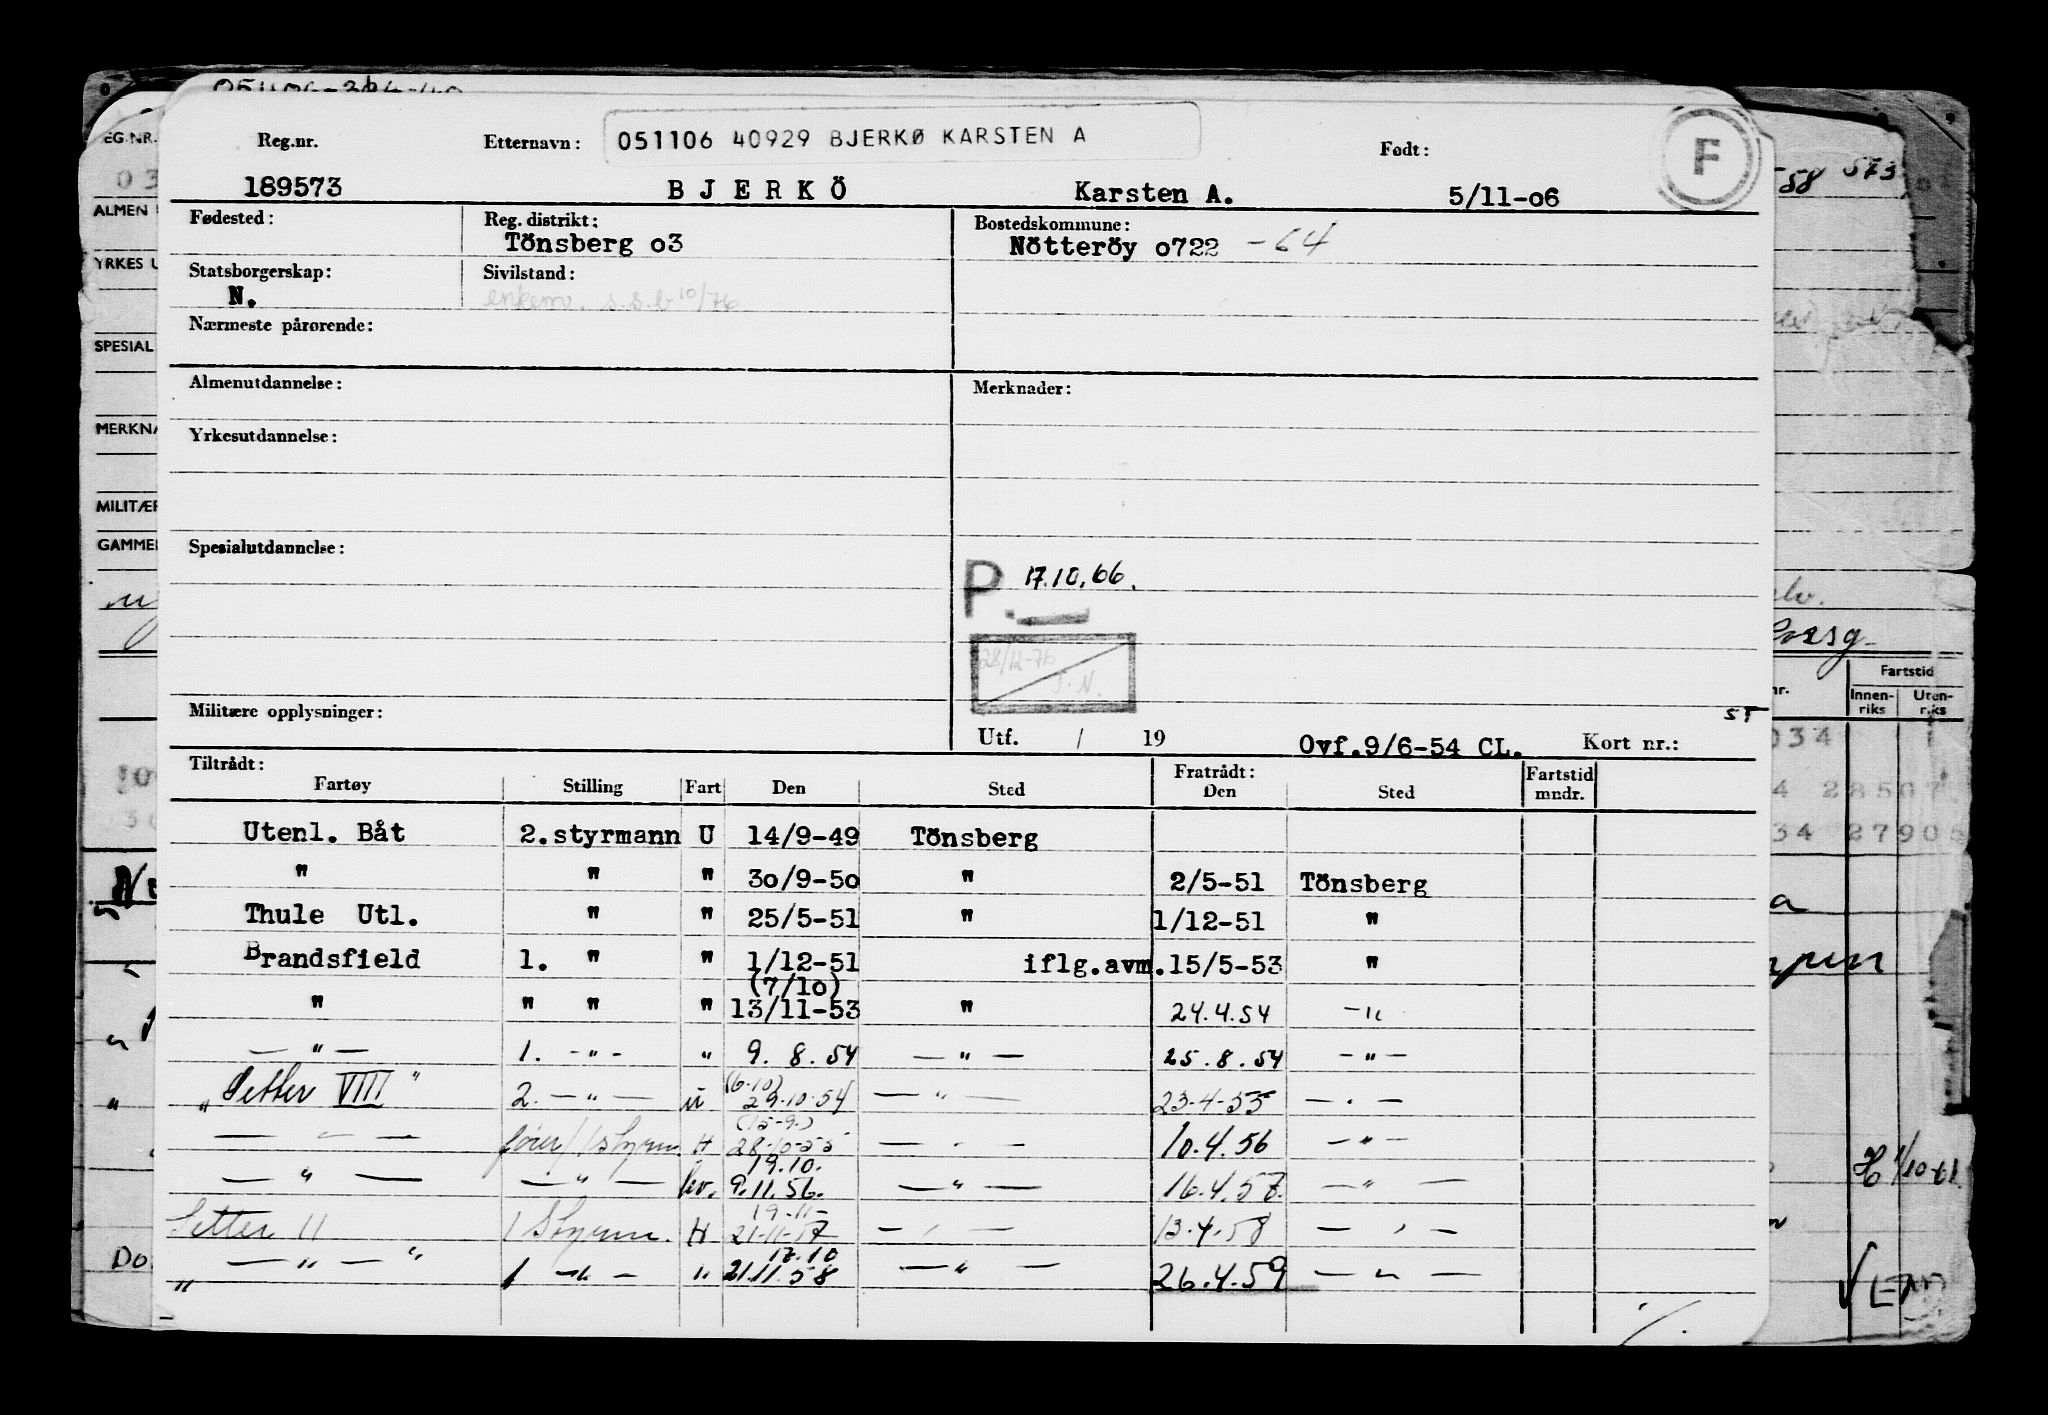 Reg.nr. Etternavn: 051106 40929 BJERKØ KARSTEN A Født: F
189573 BJERKÖ Karsten A. 5/11-06
Fødested: Reg. distrikt: Bostedskommune:
Tönsberg 03 Nötteröy 0722 -64
Statsborgerskap: Sivilstand:
N. enkem. s.s.b 10/76
Nærmeste pårørende:
Almenutdannelse: Merknader:
Yrkesutdannelse:
Spesialutdannelse:
P. 17.10.66.
28/12-76
J.N.
Militære opplysninger:
Utf. / 19 Ovf.9/6-54 CL. Kort nr.:
Tiltrådt: Fratrådt: Fartstid
Fartøy Stilling Fart Den Sted Den Sted mndr.
Utenl. Båt 2.styrmann U 14/9-49 Tönsberg
" " " 30/9-50 " 2/5-51 Tönsberg
Thule Utl. " " 25/5-51 " 1/12-51 "
Brandsfield 1. " " 1/12-51 iflg.avm. 15/5-53 "
(7/10)
" " " " 13/11-53 " 24.4.54 -"
— " — 1. -"- " 9. 8. 54 — " — 25.8.54 — " —
(6.10)
„Setter VIII" 2. — " — u 29.10.54 — " — 23-4-55 — " —
(15-9.)
— " — fører/1styrm. H 28-10-55 — " — 10.4.56 — " —
19.10.
— " — — " — hv. 9.11.56. — " — 16.4.57. — " —
19-11-
Setter II 1 Styrm. H 21-11-57 — " — 13.4.58 — " —
17.10
„ — " — " 1 -"- " 21.11.58 — " — 26.4.59 — " —
EG.NR.
03
ALMEN
YRKES U
SPESIAL
MERKNA
MILITÆR
GAMMEL
Do
58 573
Fartstid
Innen-
riks
Uten-
riks
034
4 28507
34 27905
H 1/10-61